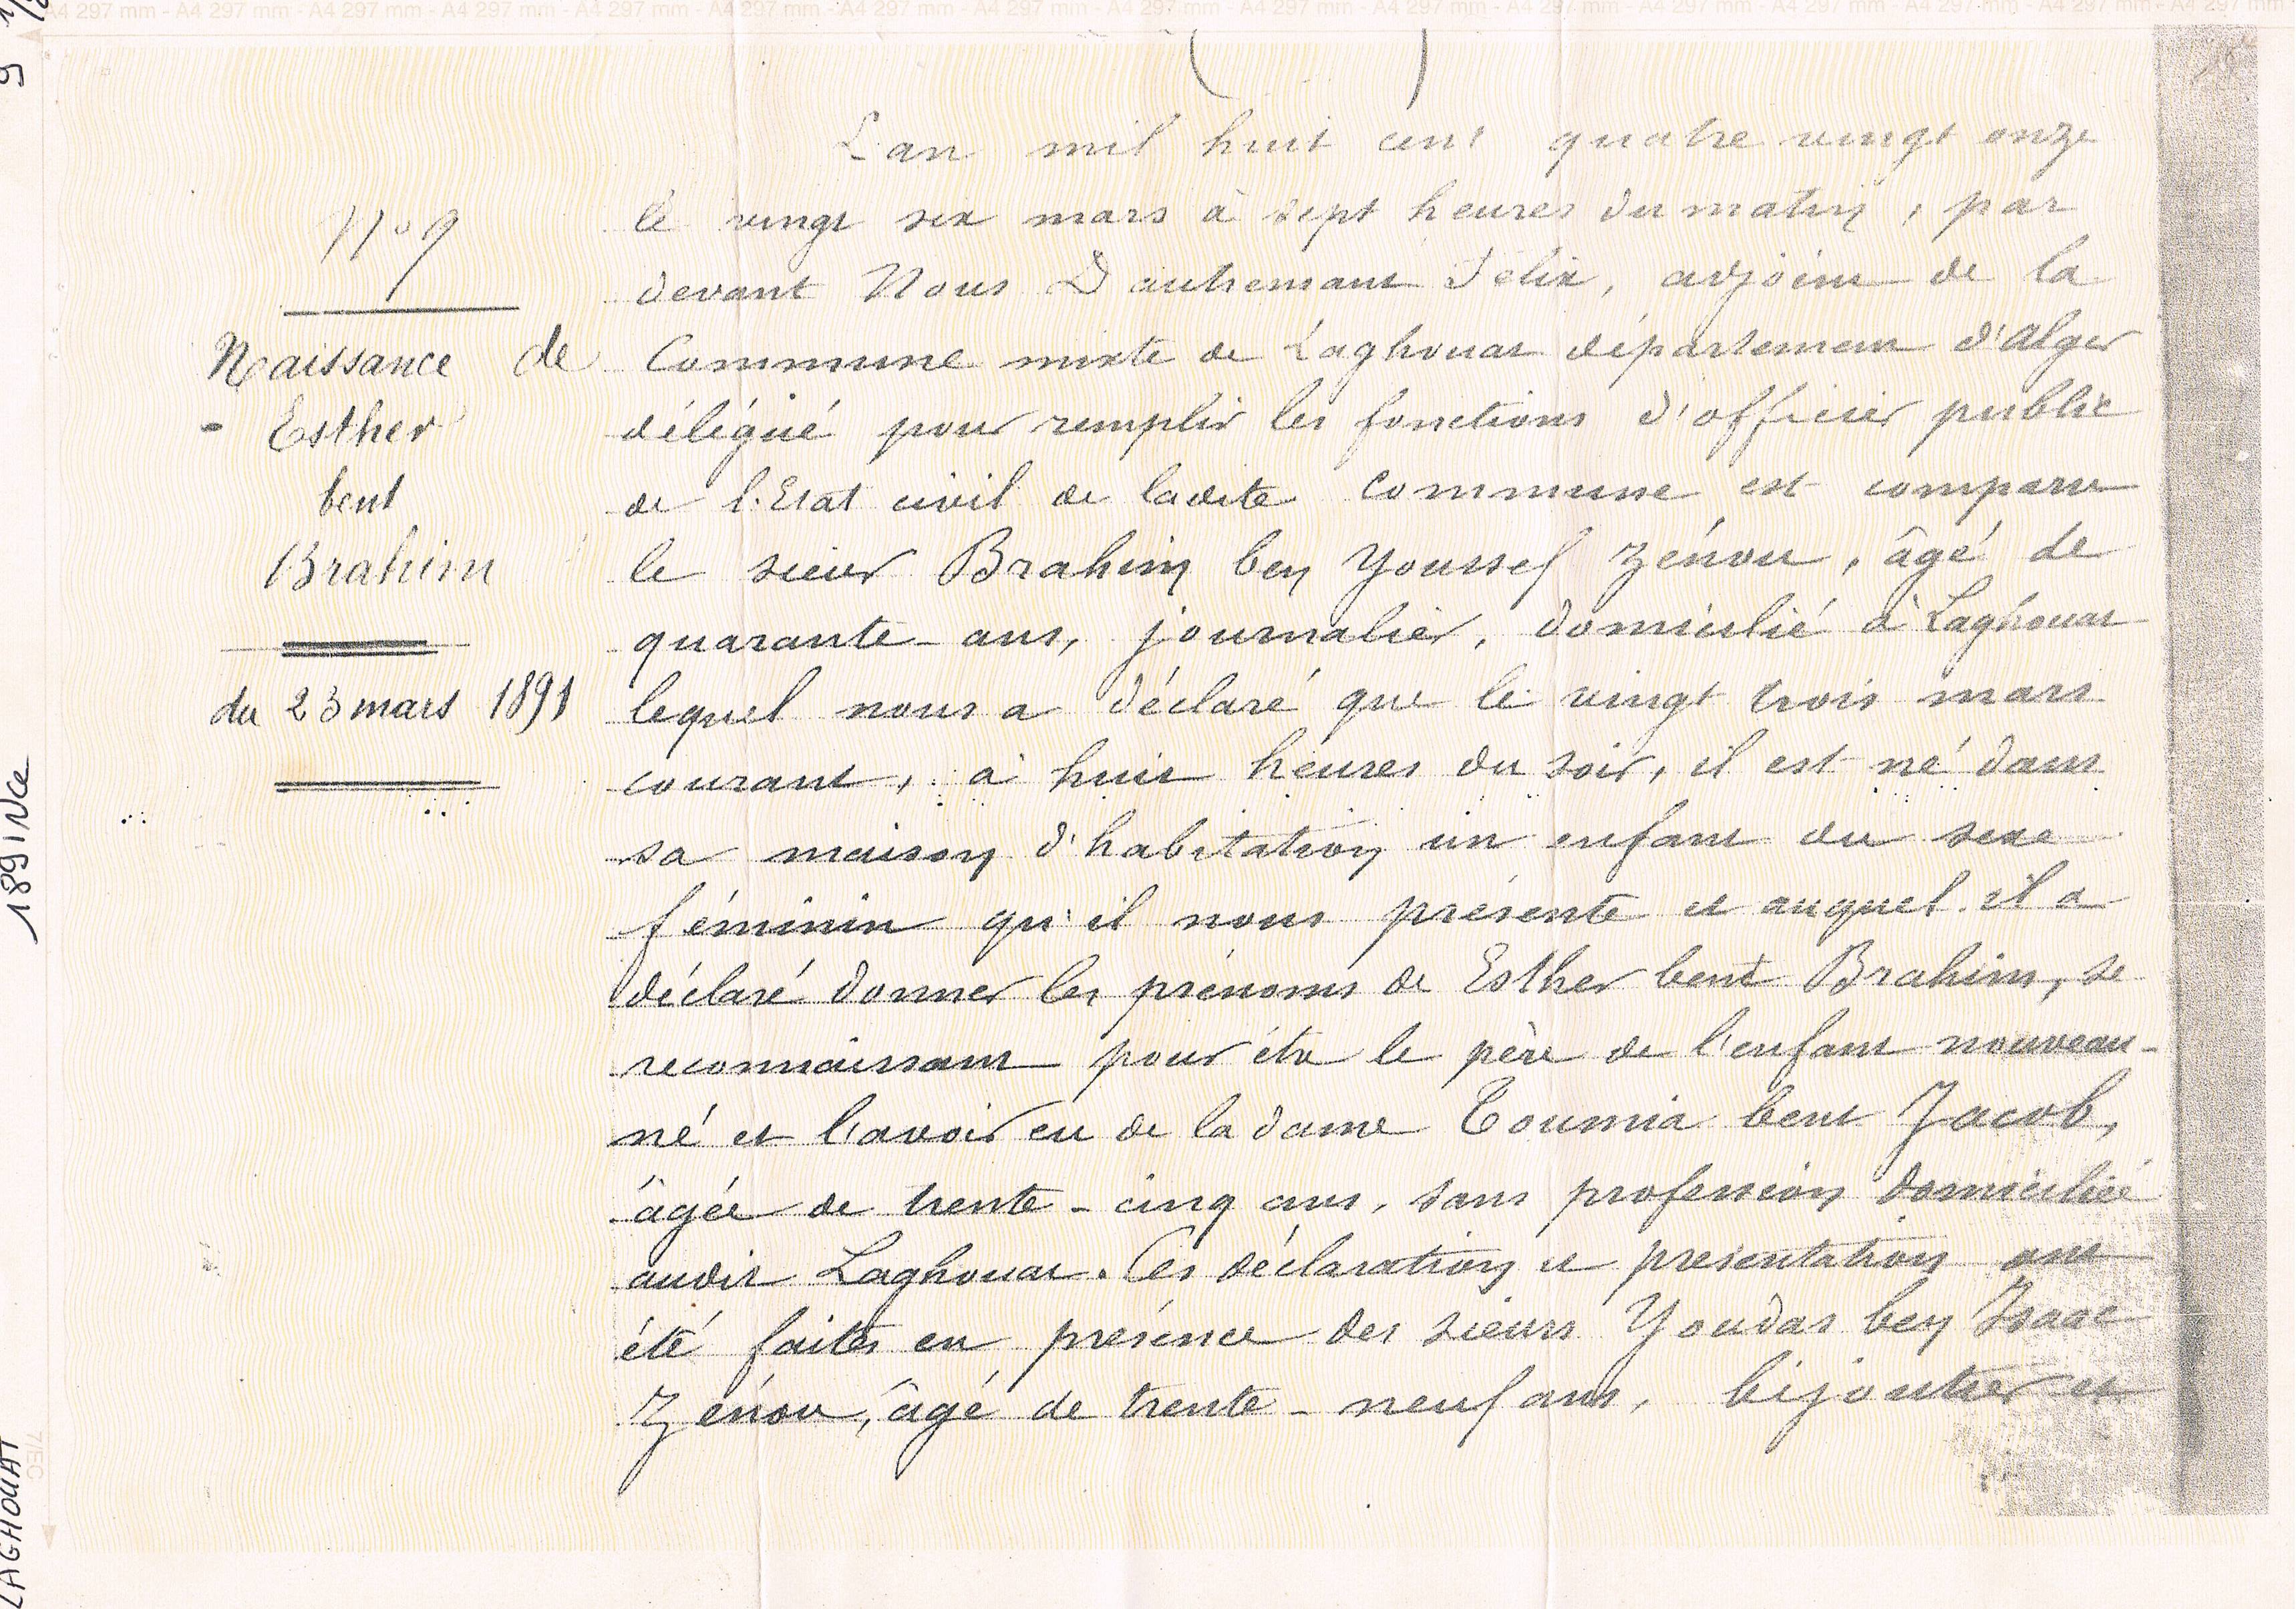 A4 297 mm - A4 297 mm - A4 297 mm - A4 297 mm - A4 297 mm - A4 297 mm - A4 297 mm - A4 297 mm - A4 297 mm - A4 297 mm - A4 297 mm - A4 297 mm - A4 297 mm
N° 9
Naissance de
- Esther
bent
Brahim
du 23 mars 1891
L'an mil huit cent quatre vingt onze
le vingt six mars à sept heures du matin, par
devant Nous Dautremant Félix, adjoint de la
Commune mixte de Laghouat département d'Alger
délégué pour remplir les fonctions d'officier public
de l'Etat civil de ladite Commune est comparu
le sieur Brahim ben Youssef Zénou, âgé de
quarante ans, journalier, domicilié à Laghouat
lequel nous a déclaré que le vingt trois mars
courant, à huit heures du soir, il est né dans
sa maison d'habitation un enfant du sexe
féminin qu'il nous présente et auquel il a
déclaré donner les prénoms de Esther bent Brahim, se
reconnaissant pour être le père de l'enfant nouveau-
né et l'avoir eu de la dame Toumia bent Jacob,
âgée de trente-cinq ans, sans profession domiciliée
audit Laghouat. Ces déclaration et présentation ont
été faites en présence des sieurs Youdas ben Isaac
Zénou, âgé de trente-neuf ans, bijoutier et
1891 Nce
LAGHOUAT
7/EC